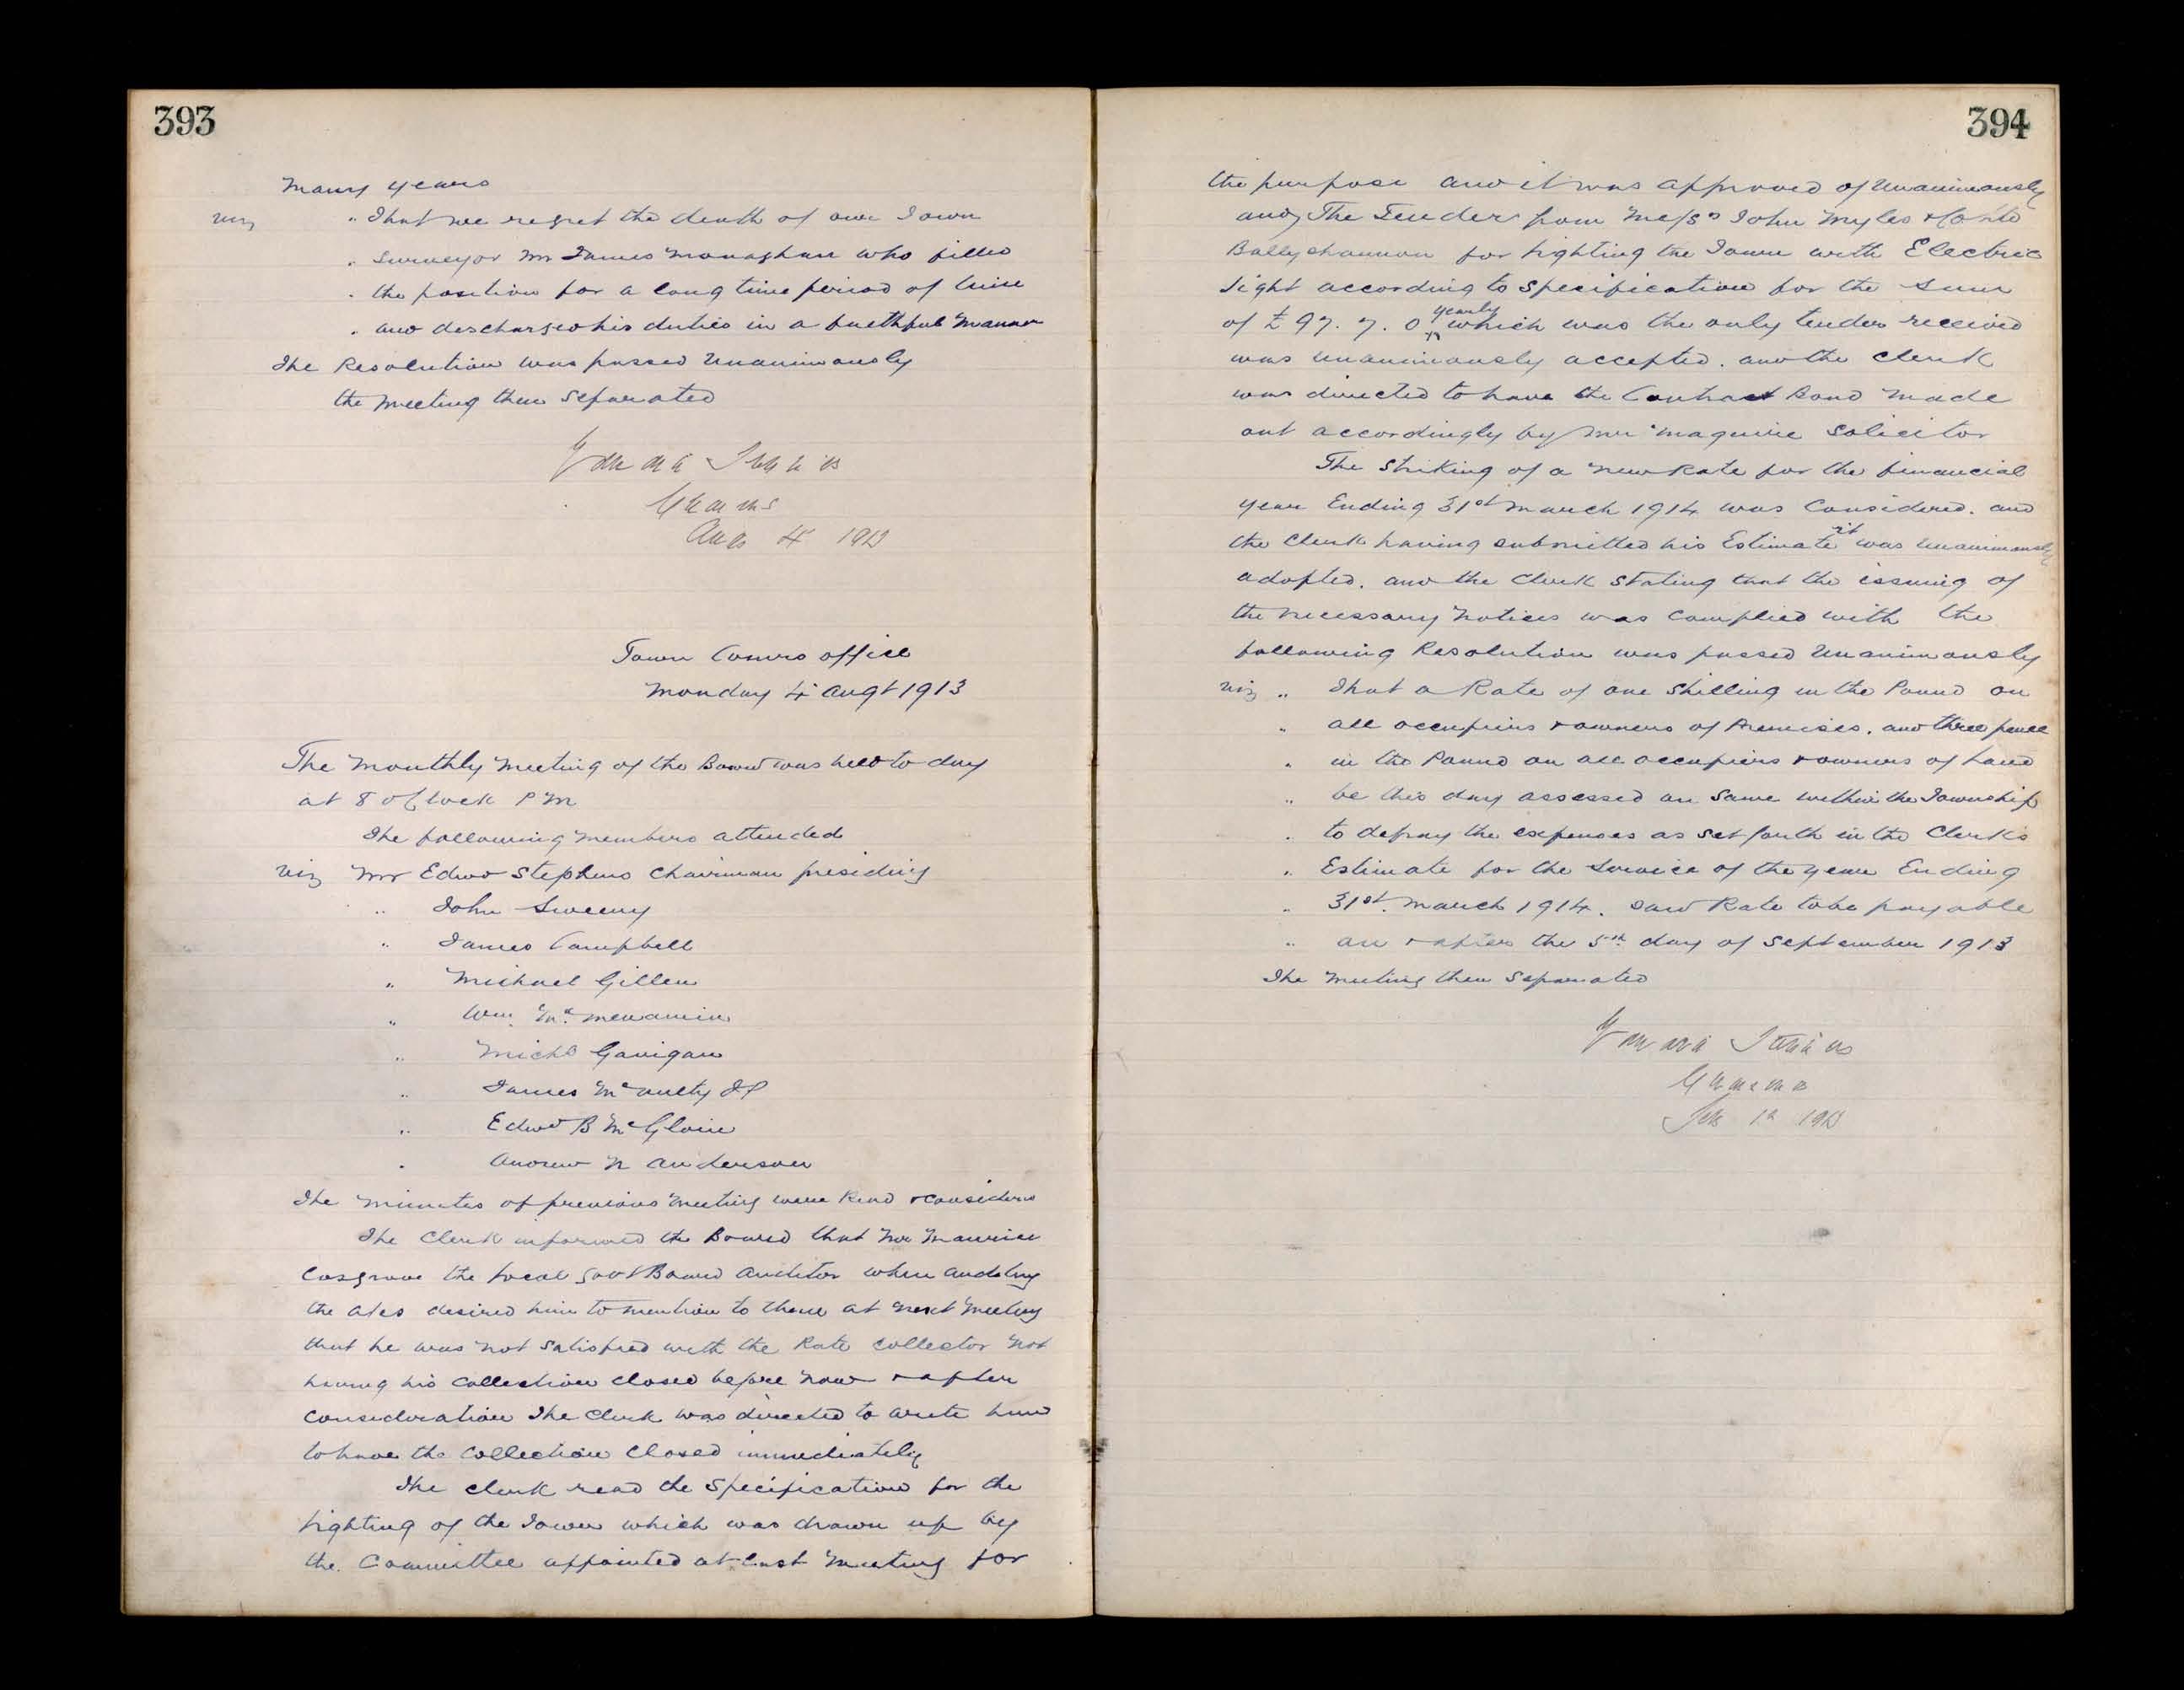 393
Many years
viz " That we regret the death of our Town
" Surveyor Mr James Monaghan who filled
" the position for a long time period of time
" and discharged his duties in a faithful manner
The Resolution was passed Unanimously
the Meeting then Separated
Edward Stephens
Chairman
Aug 4 1913
Town Comrs office
Monday 4 Augt 1913
The Monthly Meeting of the Board was held to day
at 8 oClock P M
The following members attended
viz Mr Edwd Stephens Chairman presiding
" John Sweeny
" James Campbell
" Michael Gillen
" Wm Mc Menamin
" Michl Gavigan
" James McAnulty JP
" Edwd B McGloin
" Andrew N Anderson
The Minutes of previous Meeting were Read & Considered
The Clerk informed the Board that Mr Maurice
Cosgrove the Local Govt Board Auditor when auditing
the a/cs desired him to mention to them at next Meeting
that he was not Satisfied with the Rate Collector not
having his Collection Closed before now & after
Consideration The Clerk was directed to write him
to have the Collection Closed immediately
The Clerk read the Specification for the
lighting of the Town which was drawn up by
the Committee appointed at last Meeting for
394
the purpose and it was approved of Unanimously
and The Tender from Mess John Myles & Co Ltd
Ballyshannon for lighting the Town with Electric
light according to Specification for the Sum
of £97. 7. 0 yearly which was the only tender received
was Unanimously accepted. and the Clerk
was directed to have the Contract Bond made
out accordingly by Mr Maguire Solicitor
The Striking of a New Rate for the financial
year Ending 31st March 1914 was Considered. and
the Clerk having submitted his Estimate it was Unanimously
adopted. and the Clerk Stating that the issuing of
the necessary notices was Complied with the
following Resolution was passed Unanimously
viz " That a Rate of one Shilling in the Pound on
" all occupiers & owners of Premises. and three pence
" in the Pound on all occupiers & owners of Land
" be this day assessed on Same within the Township
" to defray the expenses as set forth in the Clerks
" Estimate for the Service of the year Ending
" 31st March 1914. said Rate to be payable
" on & after the 5th day of September 1913
The Meeting then Separated
Edward Stephens
Chairman
Sep 1st 1913